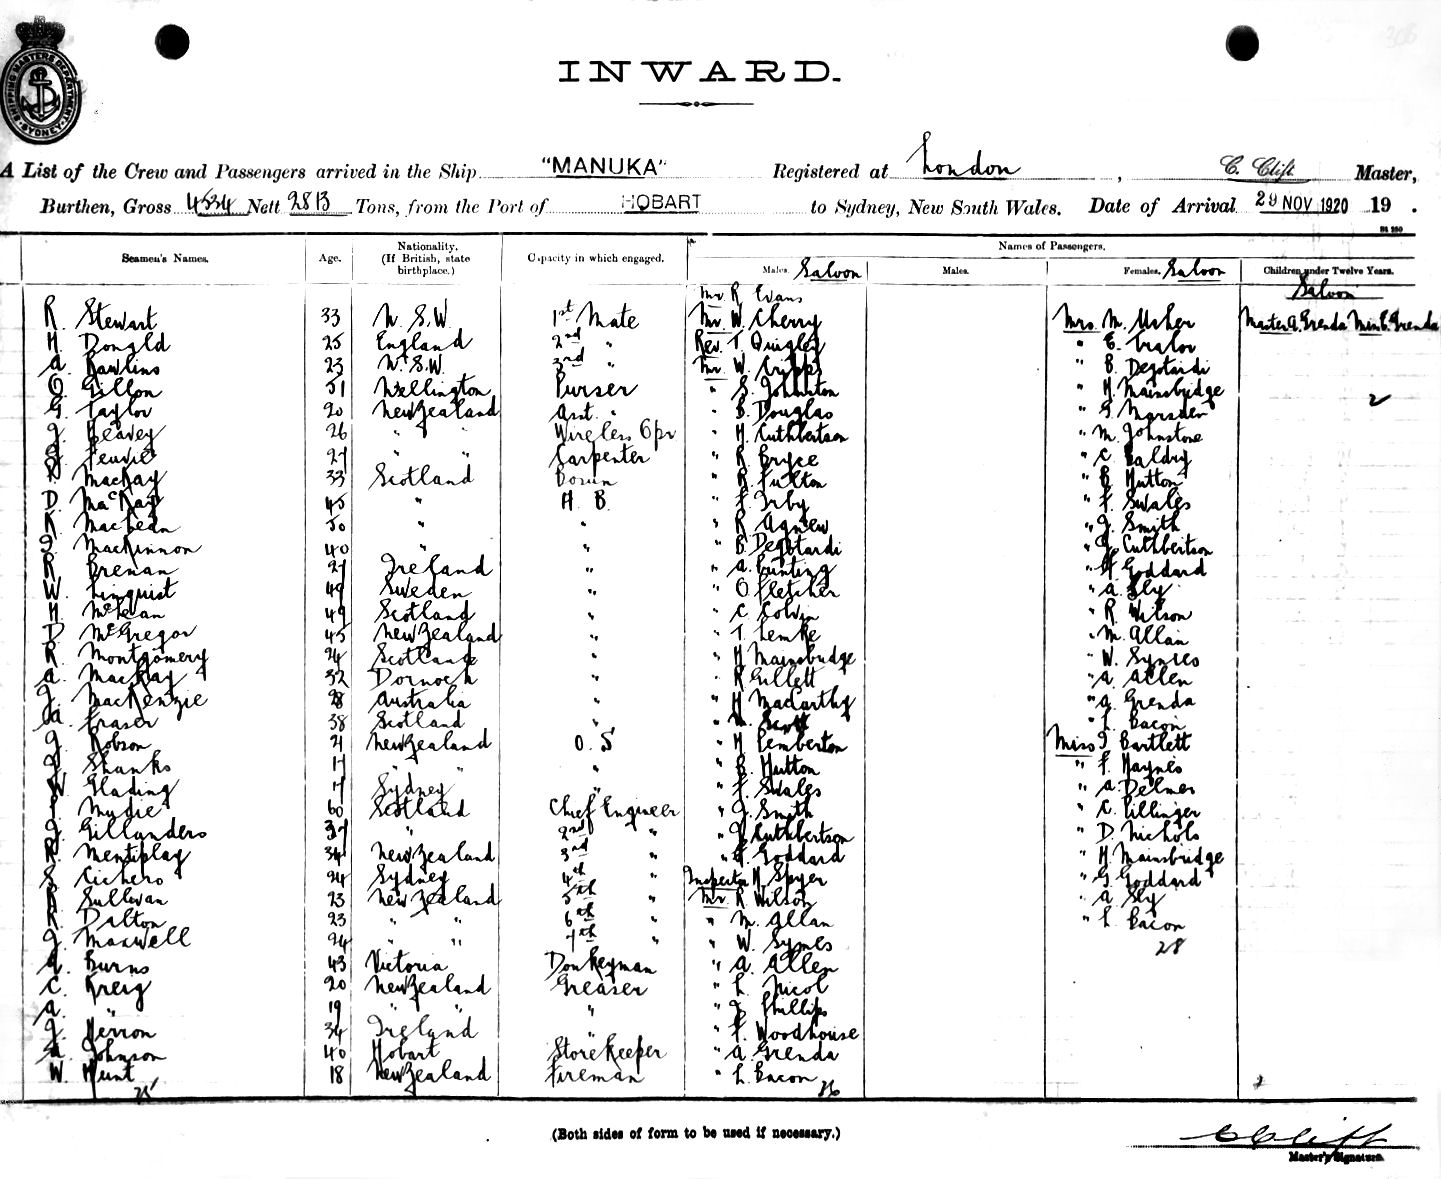 SHIPPING MASTERS DEPARTMENT SYDNEY
INWARD.
A List of the Crew and Passengers arrived in the Ship "MANUKA" Registered at London, C. Clift Master,
Burthen, Gross 4534 Nett 2813 Tons, from the Port of HOBART to Sydney, New South Wales. Date of Arrival 29 NOV 1920 19 .
Seamen's Names. Age. Nationality. (If British, state birthplace.) Capacity in which engaged. Names of Passengers.
Males. Saloon Males. Females. Saloon Children under Twelve Years.
Saloon
Mr. R Evans
R Stewart 33 N.S.W 1st Mate Mr. W. Cherry Mrs. M. Usher Master A. Grenda Miss E. Grenda
H Donald 25 England 2nd " Rev. T. Quigley " E.
A Rawlins 23 N.S.W. 3rd " Mr. W. Cripps " B. Degotardi
O Gillon 51 Wellington Purser " S. Johnston " H. Mainsbridge
G. Taylor 20 New Zealand Asst. " " B. Douglas " G. Marsden 2
J. Heavey 26 " " Wireless Opr " H. Cuthbertson " M. Johnstone
27 " " Carpenter " R Bryce " C Baldry
MacKay 33 Scotland Bosun " R Fulton " B Hutton
D. MacKay 45 " A. B. " F Irby " F Swales
K MacLean 50 " " " R Agnew " J. Smith
J. MacKinnon 40 " " " B. Degotardi " J. Cuthbertson
R Brenan 27 Ireland " " A. Bunting " Goddard
W. Linquist 49 Sweden " " O Fletcher " A. Sly
H McLean 49 Scotland " " C Colvin " R Wilson
D McGregor 45 New Zealand " " T Lemke " M. Allan
R. Montgomery 24 Scotland " " H Mainsbridge " W. Symes
A. MacKay 32 Dornoch " " R Gillett " A. Allen
J. MacKenzie 28 Australia " " H MacCarthy " A. Grenda
A. Fraser 38 Scotland " " Scott " L. Bacon
J. Robson 21 New Zealand O. S " H Pemberton Miss I Bartlett
J Shanks 17 " " " " B. Hutton " F. Haynes
W Glading 17 Sydney " " F. Swales " A. Delmer
Mudie 60 Scotland Chief Engineer " J. Smith " C. Pillinger
J. Gillanders 37 " 2nd " " J. Cuthbertson " D. Nichols
R. Mentiplay 34 New Zealand 3rd " " Goddard " H. Mainsbridge
S Cichero 24 Sydney 4th " Inspector H. Spyer " G. Goddard
R Sullivan 23 New Zealand 5th " Mr. R. Wilson " A. Sly
R Dalton 23 " " 6th " " M. Allan " L. Bacon
J. Maxwell 24 " " 7th " " W. Symes 28
A. Burns 43 Victoria Donkeyman " A. Allen
C. Greig 20 New Zealand Greaser " L. Nicol
A. " 19 " " " " J. Phillips
J. Herron 34 Ireland " " F. Woodhouse
A. Johnson 40 Hobart Storekeeper " A. Grenda
W. Hunt 18 New Zealand Fireman " L. Bacon
35 36
(Both sides of form to be used if necessary.)
C Clift
Master's Signature.